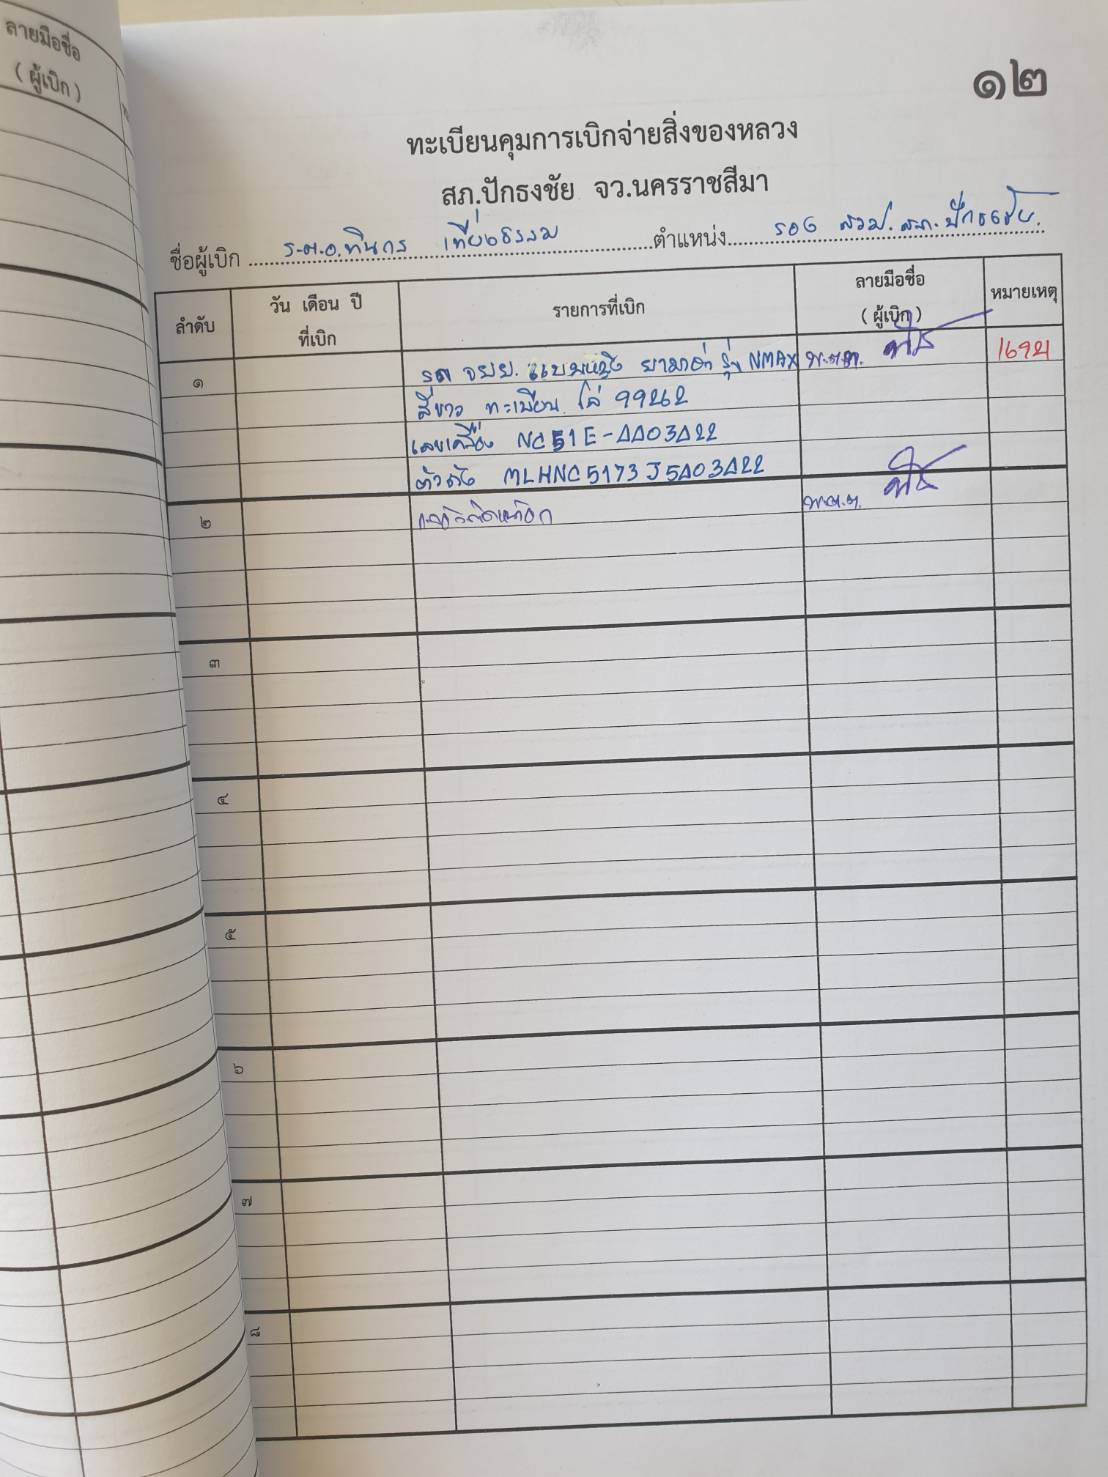 ลายมือชื่อ
( ผู้เบิก )
๑๒
ทะเบียนคุมการเบิกจ่ายสิ่งของหลวง
สภ.ปักธงชัย จว.นครราชสีมา
ชื่อผู้เบิก ร.ต.อ.ทินกร เที่ยงธรรม ตำแหน่ง รอง สวป. สภ.ปักธงชัย.
ลำดับ วัน เดือน ปี ที่เบิก รายการที่เบิก ลายมือชื่อ ( ผู้เบิก ) หมายเหตุ
๑ รถ จยย. แบบผู้หญิง ยามาฮ่า รุ่น NMAX พ.ต.ต.
สีขาว ทะเบียน โล่ 99262
เลขเครื่อง NC51E-AA03A22
ตัวถัง MLHNC5173J5A03A22
๒ พ.ต.ต.
๓
๔
๕
๖
๗
๘